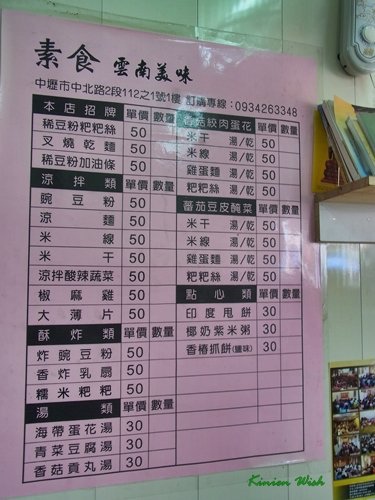 素食 雲南美味
中壢市中北路2段112之1號1樓 訂購專線:0934263348
本店招牌 單價 數量
稀豆粉粑粑絲 50
叉燒乾麵 50
稀豆粉加油條 50
涼拌類 單價 數量
豌豆粉 50
涼麵 50
米線 50
米干 50
涼拌酸辣蔬菜 50
椒麻雞 50
大薄片 50
酥炸類 單價 數量
炸豌豆粉 50
香炸乳扇 50
糯米粑粑 50
湯類 單價 數量
海帶蛋花湯 30
青菜豆腐湯 30
香菇貢丸湯 30
香菇絞肉蛋花 單價 數量
米干 湯/乾 50
米線 湯/乾 50
雞蛋麵 湯/乾 50
粑粑絲 湯/乾 50
蕃茄豆皮醃菜 單價 數量
米干 湯/乾 50
米線 湯/乾 50
雞蛋麵 湯/乾 50
粑粑絲 湯/乾 50
點心類 單價 數量
印度甩餅 30
椰奶紫米粥 30
香椿抓餅(鹽味) 30
Kinion Wish